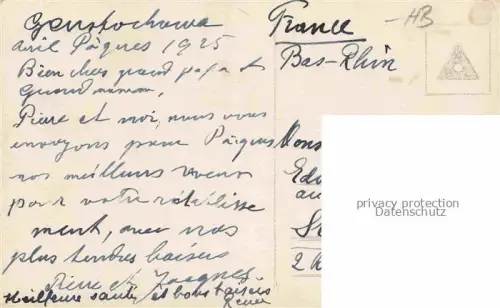 Czenstochowa
avril Pâques 1925
Bien chers grand papa et
Grand maman,
Pierre et moi, nous vous
envoyons pour Pâques
nos meilleurs voeux
pour votre rétablisse
ment, avec nos
plus tendres baisers
Pierre et Jacques
Meilleure santé et bons baisers
France
Bas-Rhin
HB
Mons
Ed
au
2
privacy protection
Datenschutz